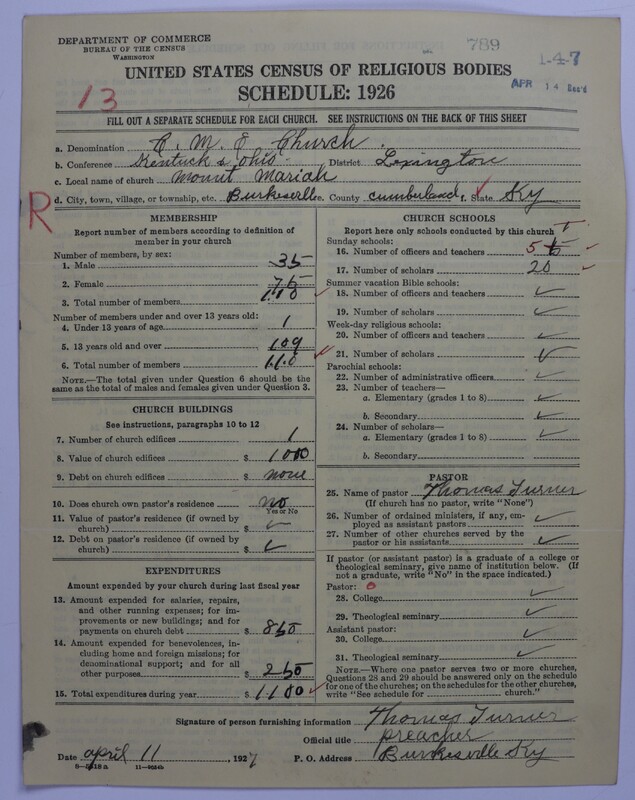 DEPARTMENT OF COMMERCE
BUREAU OF THE CENSUS
WASHINGTON
789
1-4-7
APR 14 Rec'd
UNITED STATES CENSUS OF RELIGIOUS BODIES
SCHEDULE: 1926
13
FILL OUT A SEPARATE SCHEDULE FOR EACH CHURCH. SEE INSTRUCTIONS ON THE BACK OF THIS SHEET
a. Denomination C. M. E Church
b. Conference Kentuck & Ohio District Lexington
c. Local name of church Mount Mariah
R
d. City, town, village, or township, etc. Burkesville e. County cumberland f. State Ky
MEMBERSHIP
Report number of members according to definition of member in your church
Number of members, by sex:
1. Male 35
2. Female 75
3. Total number of members 110
Number of members under and over 13 years old:
4. Under 13 years of age 1
5. 13 years old and over 109
6. Total number of members 110
NOTE.—The total given under Question 6 should be the same as the total of males and females given under Question 3.
CHURCH BUILDINGS
See instructions, paragraphs 10 to 12
7. Number of church edifices 1
8. Value of church edifices $ 1000
9. Debt on church edifices $ none
10. Does church own pastor's residence no
Yes or No
11. Value of pastor's residence (if owned by church) $ ✓
12. Debt on pastor's residence (if owned by church) $ ✓
EXPENDITURES
Amount expended by your church during last fiscal year
13. Amount expended for salaries, repairs, and other running expenses; for improvements or new buildings; and for payments on church debt $ 850
14. Amount expended for benevolences, including home and foreign missions; for denominational support; and for all other purposes $ 250
15. Total expenditures during year $ 1100
CHURCH SCHOOLS
Report here only schools conducted by this church
Sunday schools:
16. Number of officers and teachers 5
17. Number of scholars 20
Summer vacation Bible schools:
18. Number of officers and teachers ✓
19. Number of scholars ✓
Week-day religious schools:
20. Number of officers and teachers ✓
21. Number of scholars ✓
Parochial schools:
22. Number of administrative officers ✓
23. Number of teachers—
a. Elementary (grades 1 to 8) ✓
b. Secondary ✓
24. Number of scholars—
a. Elementary (grades 1 to 8) ✓
b. Secondary ✓
PASTOR
25. Name of pastor Thomas Turner
(If church has no pastor, write "None")
26. Number of ordained ministers, if any, employed as assistant pastors ✓
27. Number of other churches served by the pastor or his assistants ✓
If pastor (or assistant pastor) is a graduate of a college or theological seminary, give name of institution below. (If not a graduate, write "No" in the space indicated.)
Pastor: 0
28. College ✓
29. Theological seminary ✓
Assistant pastor:
30. College ✓
31. Theological seminary ✓
NOTE.—Where one pastor serves two or more churches, Questions 28 and 29 should be answered only on the schedule for one of the churches; on the schedules for the other churches, write "See schedule for church."
Signature of person furnishing information Thomas Turner
Official title preacher
Date april 11, 1927 P. O. Address Burkesville Ky
8-5518a 11-9024b